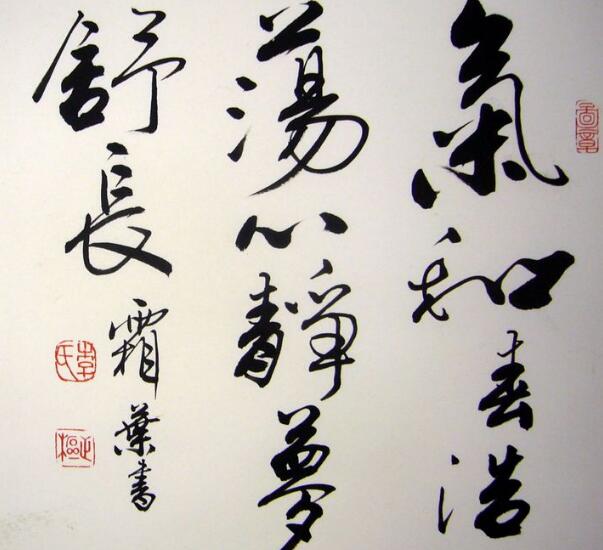 氣和春浩
蕩心靜夢
舒長
霜葉書
李氏